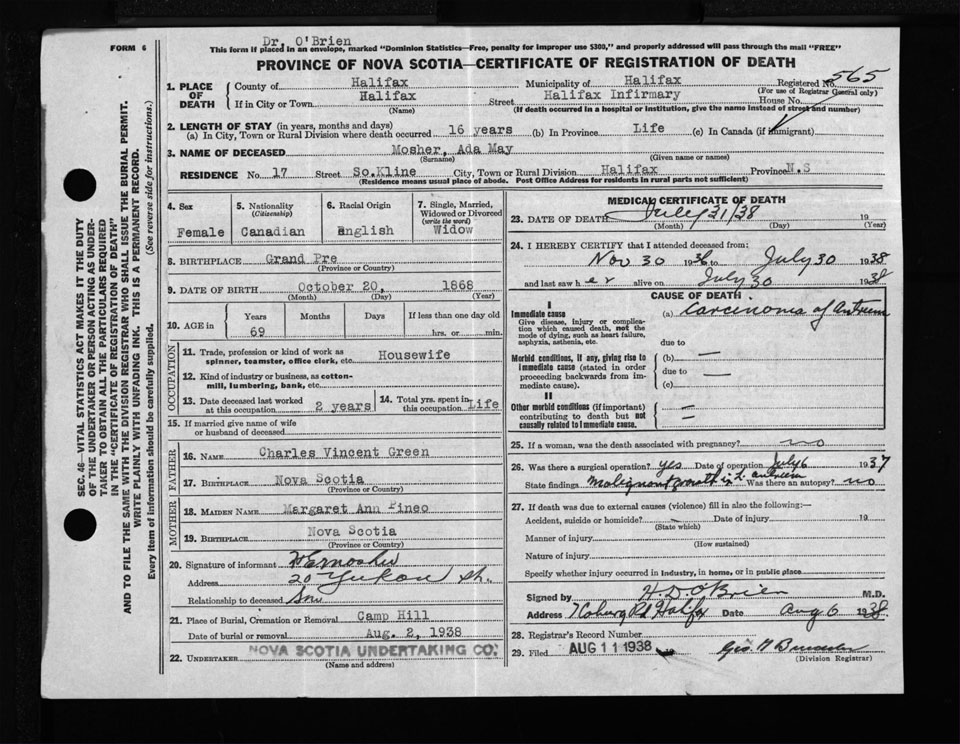 FORM 6
Dr. O'Brien
This form if placed in an envelope, marked "Dominion Statistics—Free, penalty for improper use $300," and properly addressed will pass through the mail "FREE"
PROVINCE OF NOVA SCOTIA—CERTIFICATE OF REGISTRATION OF DEATH
1. PLACE OF DEATH
County of Halifax Municipality of Halifax Registered No. 565
(For use of Registrar General only)
If in City or Town Halifax Street Halifax Infirmary House No.
(Name) (If death occurred in a hospital or institution, give the name instead of street and number)
2. LENGTH OF STAY (in years, months and days)
(a) In City, Town or Rural Division where death occurred 16 years (b) In Province Life (c) In Canada (if immigrant)
3. NAME OF DECEASED Mosher, Ada May
(Surname) (Given name or names)
RESIDENCE No. 17 Street So.Kline City, Town or Rural Division Halifax Province N.S
(Residence means usual place of abode. Post Office Address for residents in rural parts not sufficient)
4. Sex
Female
5. Nationality
(Citizenship)
Canadian
6. Racial Origin
English
7. Single, Married, Widowed or Divorced
(write the word)
Widow
8. BIRTHPLACE Grand Pre
(Province or Country)
9. DATE OF BIRTH October 20, 1868
(Month) (Day) (Year)
10. AGE in Years Months Days If less than one day old
69 hrs. or min.
OCCUPATION
11. Trade, profession or kind of work as spinner, teamster, office clerk, etc. Housewife
12. Kind of industry or business, as cotton-mill, lumbering, bank, etc.
13. Date deceased last worked at this occupation 2 years
14. Total yrs. spent in this occupation Life
15. If married give name of wife or husband of deceased
FATHER
16. NAME Charles Vincent Green
17. BIRTHPLACE Nova Scotia
(Province or Country)
MOTHER
18. MAIDEN NAME Margaret Ann Pineo
19. BIRTHPLACE Nova Scotia
(Province or Country)
20. Signature of informant Mosher
Address 20 Yukon St.
Relationship to deceased Son
21. Place of Burial, Cremation or Removal Camp Hill
Date of burial or removal Aug. 2, 1938
22. UNDERTAKER NOVA SCOTIA UNDERTAKING CO.
(Name and address)
MEDICAL CERTIFICATE OF DEATH
23. DATE OF DEATH July 31/38 19
(Month) (Day) (Year)
24. I HEREBY CERTIFY that I attended deceased from:
Nov 30 1936 to July 30 1938
and last saw h er alive on July 30 1938
CAUSE OF DEATH
I
Immediate cause
Give disease, injury or complication which caused death, not the mode of dying, such as heart failure, asphyxia, asthenia, etc.
(a) Carcinoma of Antrum
due to
Morbid conditions, if any, giving rise to immediate cause (stated in order proceeding backwards from immediate cause).
(b) —
due to —
(c)
II
Other morbid conditions (if important) contributing to death but not causally related to immediate cause.
25. If a woman, was the death associated with pregnancy? no
26. Was there a surgical operation? yes Date of operation July 6 1937
State findings Malignant growth in L. antrum Was there an autopsy? no
27. If death was due to external causes (violence) fill in also the following:—
Accident, suicide or homicide? Date of injury 19
(State which)
Manner of injury
(How sustained)
Nature of injury
Specify whether injury occurred in industry, in home, or in public place
Signed by H. D. O'Brien M.D.
Address Coburg Rd Halifax Date Aug 6 1938
28. Registrar's Record Number
29. Filed AUG 11 1938 Geo. H
(Division Registrar)
SEC. 46—VITAL STATISTICS ACT MAKES IT THE DUTY OF THE UNDERTAKER OR PERSON ACTING AS UNDERTAKER TO OBTAIN ALL THE PARTICULARS REQUIRED IN THE "CERTIFICATE OF REGISTRATION OF DEATH" AND TO FILE THE SAME WITH THE DIVISION REGISTRAR WHO SHALL ISSUE THE BURIAL PERMIT.
WRITE PLAINLY WITH UNFADING INK. THIS IS A PERMANENT RECORD.
Every item of information should be carefully supplied. (See reverse side for instructions.)